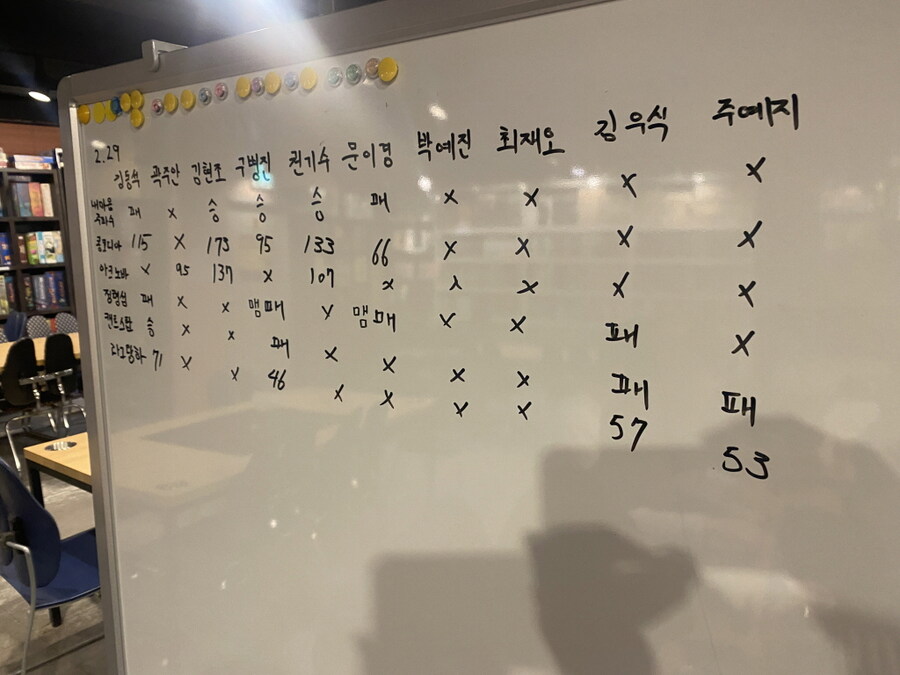 2.29
김동석 곽주안 김현조 구병진 권기수 문이경 박예진 최재오 김우식 주예지
패 x 승 승 승 패 x x x x
콜로디아 115 x 173 95 133 66 x x x x
아크노바 x 95 137 x 107 x x x x x
정령섬 패 x x 맴패 x 맴패 x x 패 x
캔트스탑 승 x x 패 x x x x 패 패
라그랑하 71 x x 46 x x x x 57 53